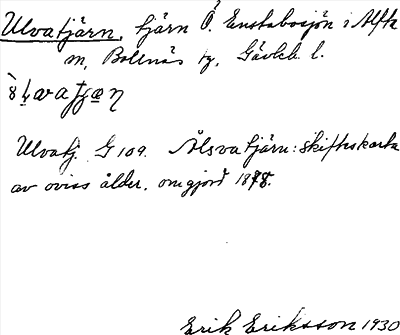 Ulvatjärn, tjärn Ö. Enstabosjön i Alfta
sn, Bollnäs tg, Gävleb. l.
Ulvatj. G 109. Ålsvatjärn: skifteskarta
av oviss ålder, omgjord 1878.
Erik Eriksson 1930